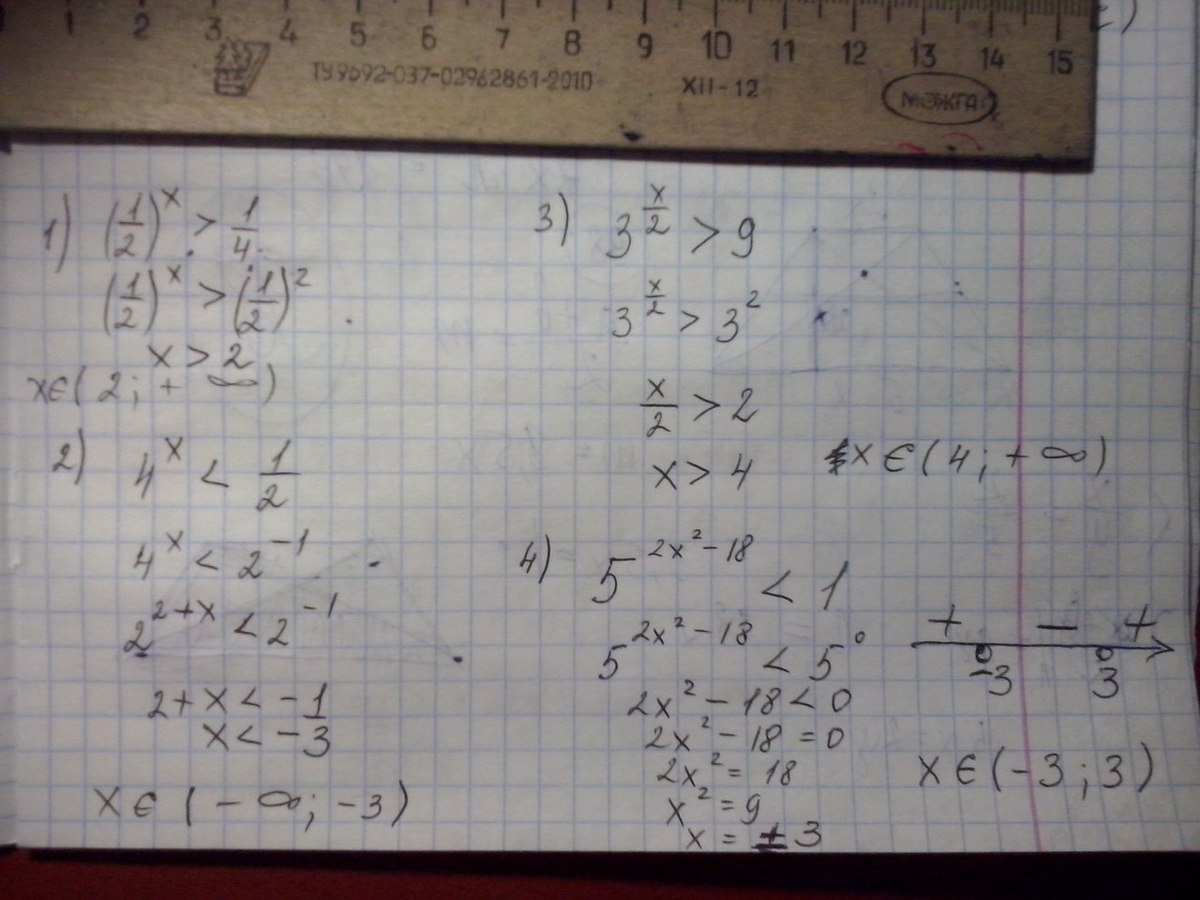 1 2 3 4 5 6 7 8 9 10 11 12 13 14 15
ТУ9692-037-02962861-2010 XII-12 МОЖГА
1) (1/2)^x > 1/4
(1/2)^x > (1/2)^2
x > 2
x∈(2; +∞)
2) 4^x < 1/2
4^x < 2^-1
2^2+x < 2^-1
2+x < -1
x < -3
x∈(-∞; -3)
3) 3^x/2 > 9
3^x/2 > 3^2
x/2 > 2
x > 4
x∈(4; +∞)
4) 5^2x²-18 < 1
5^2x²-18 < 5^0
2x²-18<0
2x²-18=0
2x²=18
x²=9
x=±3
+ − +
-3 3
x∈(-3; 3)